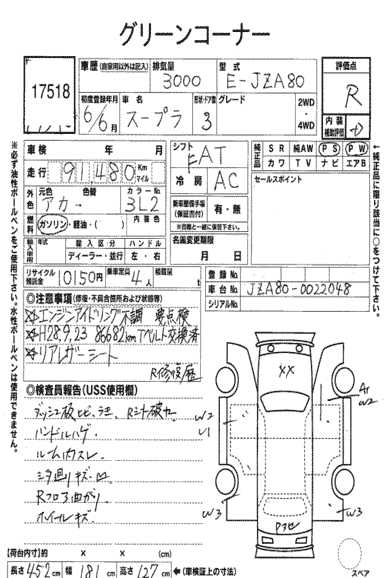 グリーンコーナー
17518
車歴 (自家用以外は記入)
排気量 3000
型式 E-JZA80
評価点 R
初度登録年月 6/6月
車名 スープラ
形状・ドア数 3
グレード
2WD
・
4WD
内装 補助評価 +
車検 年 月
走行 91480 Km マイル
シフト FAT
冷房 AC
純正品 SR 純AW PS PW
カワ TV ナビ エアB
セールスポイント
外色 元色 アカ 色替 カラーNo. 3L2
燃料 ガソリン・軽油・( ) 内装色
新車整備手帳 (保証書付) 有・無
※書類と一緒に保管して下さい。
輸入車使用 年式 輸入区分 ハンドル
ディーラー・並行 左・右
名義変更期限 月 日
リサイクル預託金 10150円 乗車定員 4人 積載量 t
登録No.
車台No. JZA80-0022048
シリアルNo.
○注意事項 (修復・不具合箇所および状態等)
☆エンジンアイドリング不調 要点検
☆H28,9,23 86682km Tベルト交換済
☆リアレザーシート
R修復歴
○検査員報告 (USS使用欄)
ダッシュ破ヒビ
ハンドルハゲ
ルームカスレ
キズ・凹
Rフロア曲がり
ホイールキズ
XX
W2
U1
A1
W2
W3
W3
スペア
[荷台内寸] 約 × × (cm)
長さ 452cm 幅 181cm 高さ 127cm ←(車検証上の寸法)
※必ず油性ボールペンをご使用下さい。水性ボールペンは使用できません。
←純正品に限り該当に○をつけて下さい。